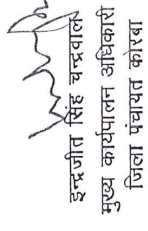 इन्द्रजीत सिंह चन्द्रवाल
मुख्य कार्यपालन अधिकारी
जिला पंचायत कोरबा